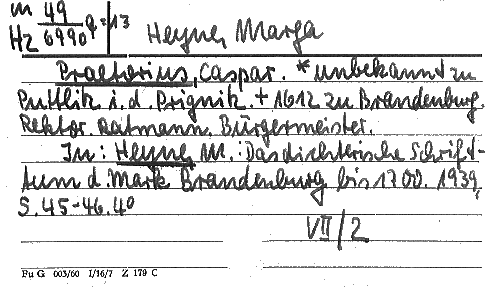 m 49
Hz 6990 q = 13
Heyne, Marga
Praetorius, Caspar. * unbekannt zu
Putlitz i. d. Prignitz. † 1612 zu Brandenburg.
Rektor. Ratmann, Bürgermeister.
In: Heyne M.: Das dichterische Schrift-
tum d. Mark Brandenburg bis 1700. 1939,
S. 45-46. 4°
VII/2
Pu G 003/60 I/16/7 Z 179 C